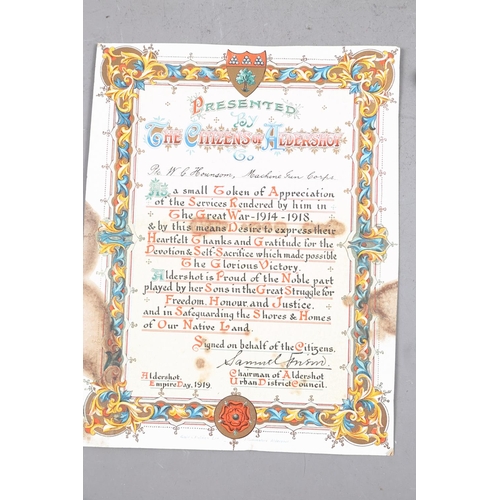 Presented
By
The Citizens of Aldershot
To
Pte W. C. Hounsom, Machine Gun Corps.
As a small Token of Appreciation
of the Services Rendered by him in
The Great War-1914-1918,
& by this means Desire to express their
Heartfelt Thanks and Gratitude for the
Devotion & Self-Sacrifice which made possible
The Glorious Victory.
Aldershot is Proud of the Noble part
played by her Sons in the Great Struggle for
Freedom, Honour, and Justice,
and in Safeguarding the Shores & Homes
of Our Native Land.
Signed on behalf of the Citizens.
Samuel
Aldershot. Chairman of Aldershot
Empire Day, 1919 Urban District Council.